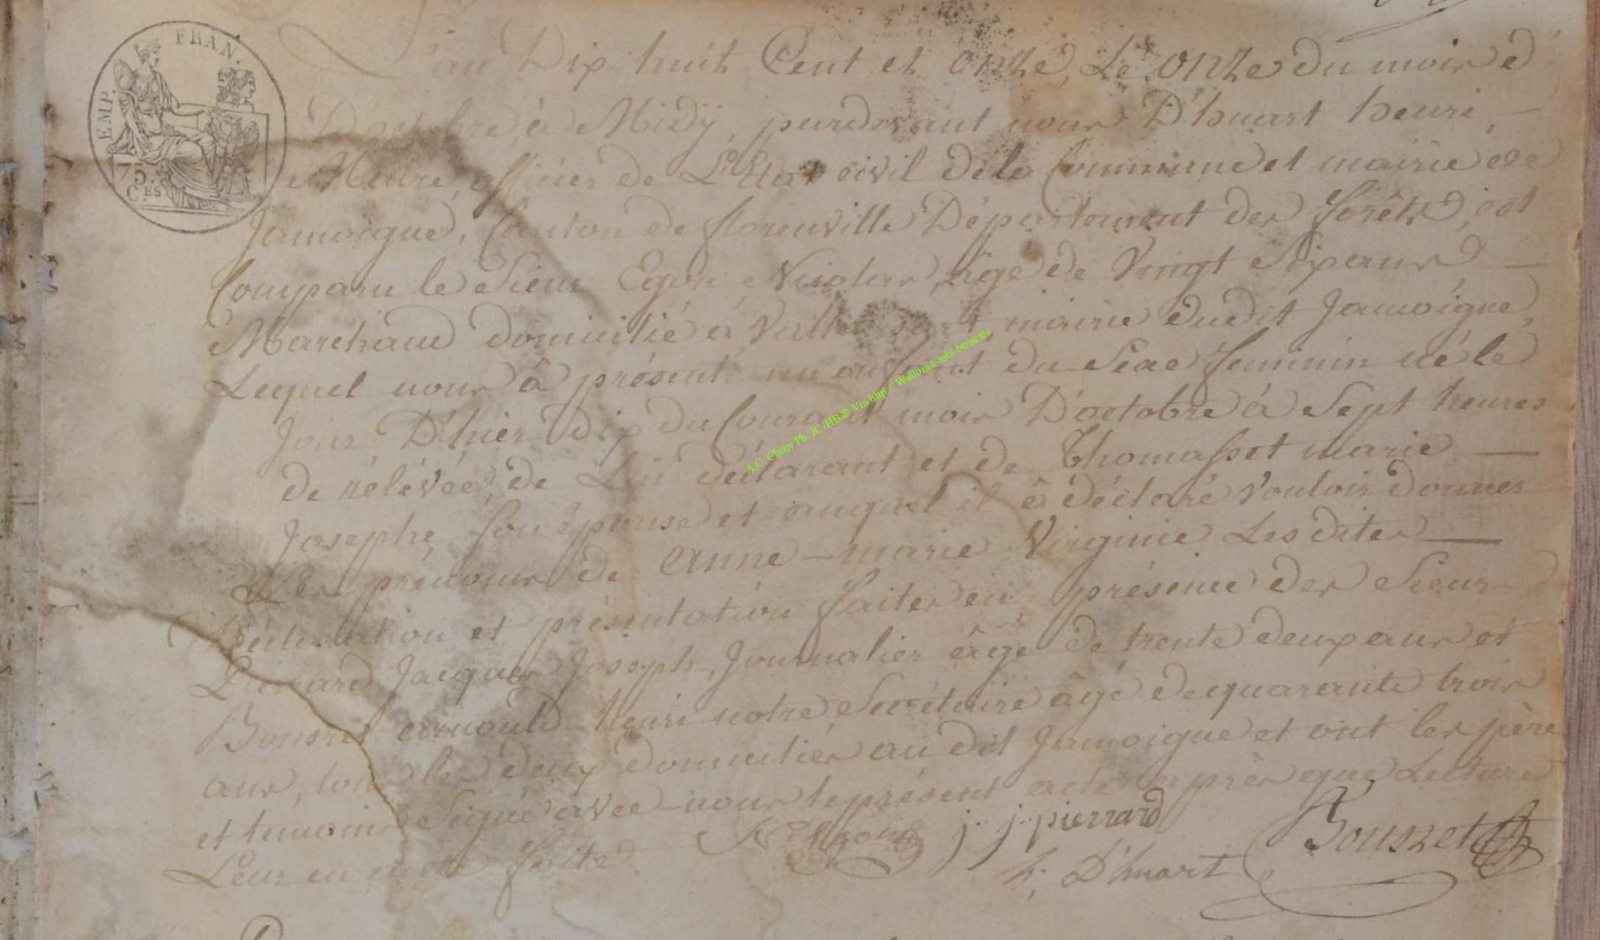 EMP. FRAN.
75 CES
L'an Dix-huit Cent et onze, Le onze du mois d
D'octobre, à Midÿ, pardevant nous D'huart henri, —
Maire, officier de L'Etat civil dela Commune et mairie de
Jamoigne, Canton de florenville Département des forêts, est
Comparu le Sieur Egon Nicolas, âgé de Vingt Six ans —
Marchand domicilié à mairie dudit Jamoigne,
Lequel nous â présenté un enfant du Sexe feminin né le
Jour D'hier Dix du Courant mois D'octobre à Sept heures
de rélévée, de Lui déclarant et de Thomasset marie —
Josephe, Son épouse et auquel il â déclaré Vouloir donner
Les prénoms de Anne-marie Virginie Lesdites —
Déclaration et présentation faites en présence des Sieurs
Pierrard Jacques Joseph, Journalier âgé de trente deux ans et
Bouszet arnould-henri notre Secrétaire âgé dequarante trois
ans, tous les deux domiciliés au dit Jamoigne et ont les père
et temoins Signé avec nous le présent acte après que Lecture
Leur en été faite
j. j. pierrard
Bouszet
h. D'huart
A.C. Chiny Ph. JC/HB® Via http://Wallonia-asbl.be/actes